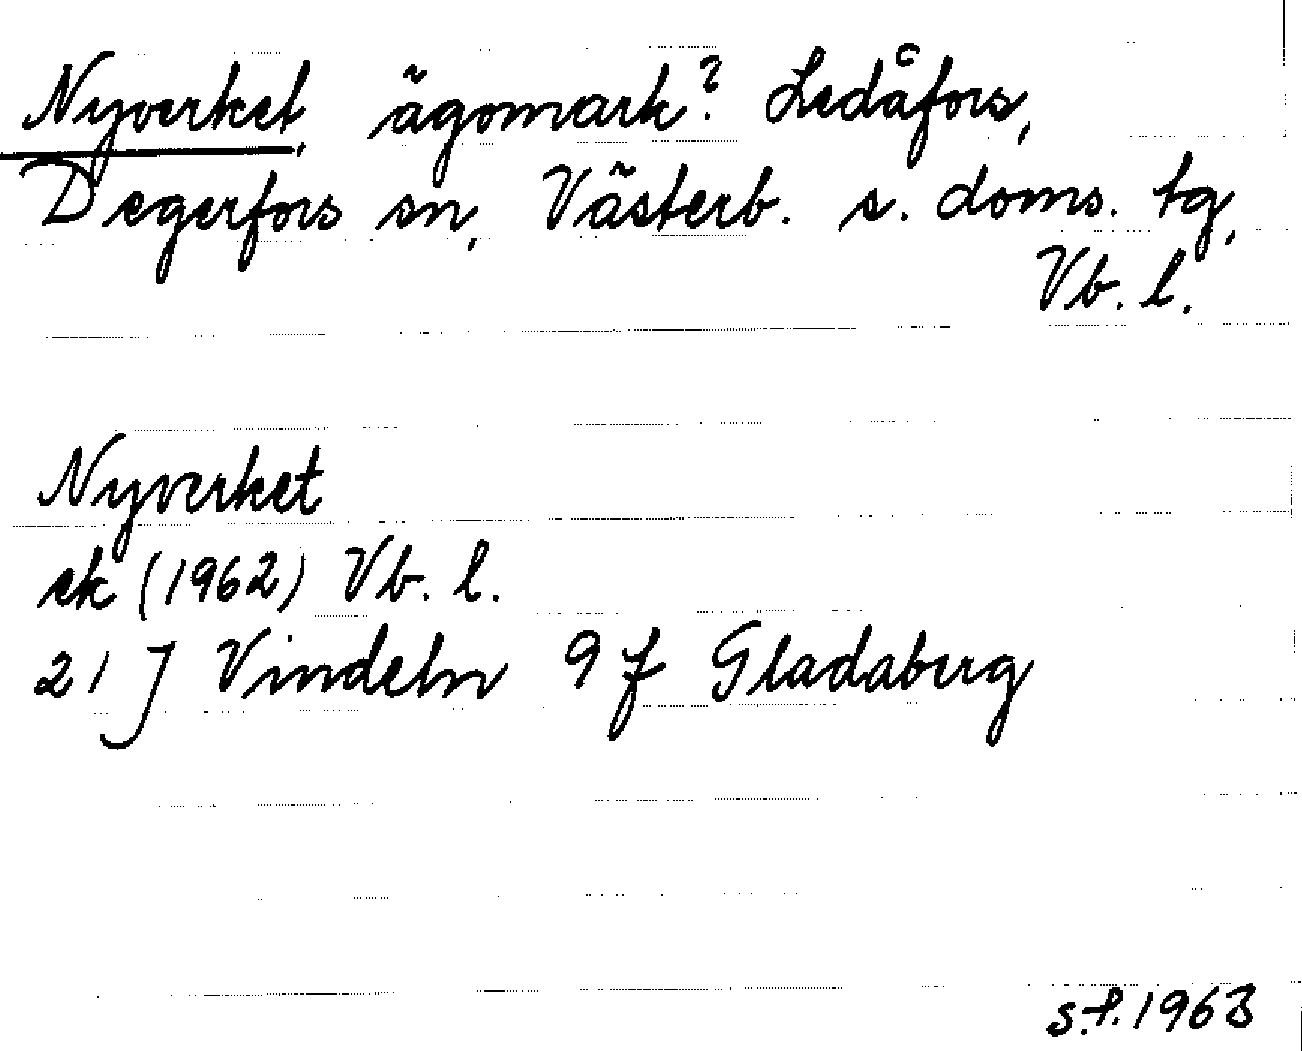 Nyverket, ägomark? Ledåfors,
Degerfors sn, Västerb. s. doms. tg,
Vb. l.
Nyverket
ek (1962) Vb. l.
21 J Vindeln 9 f Gladaberg
s.f. 1963